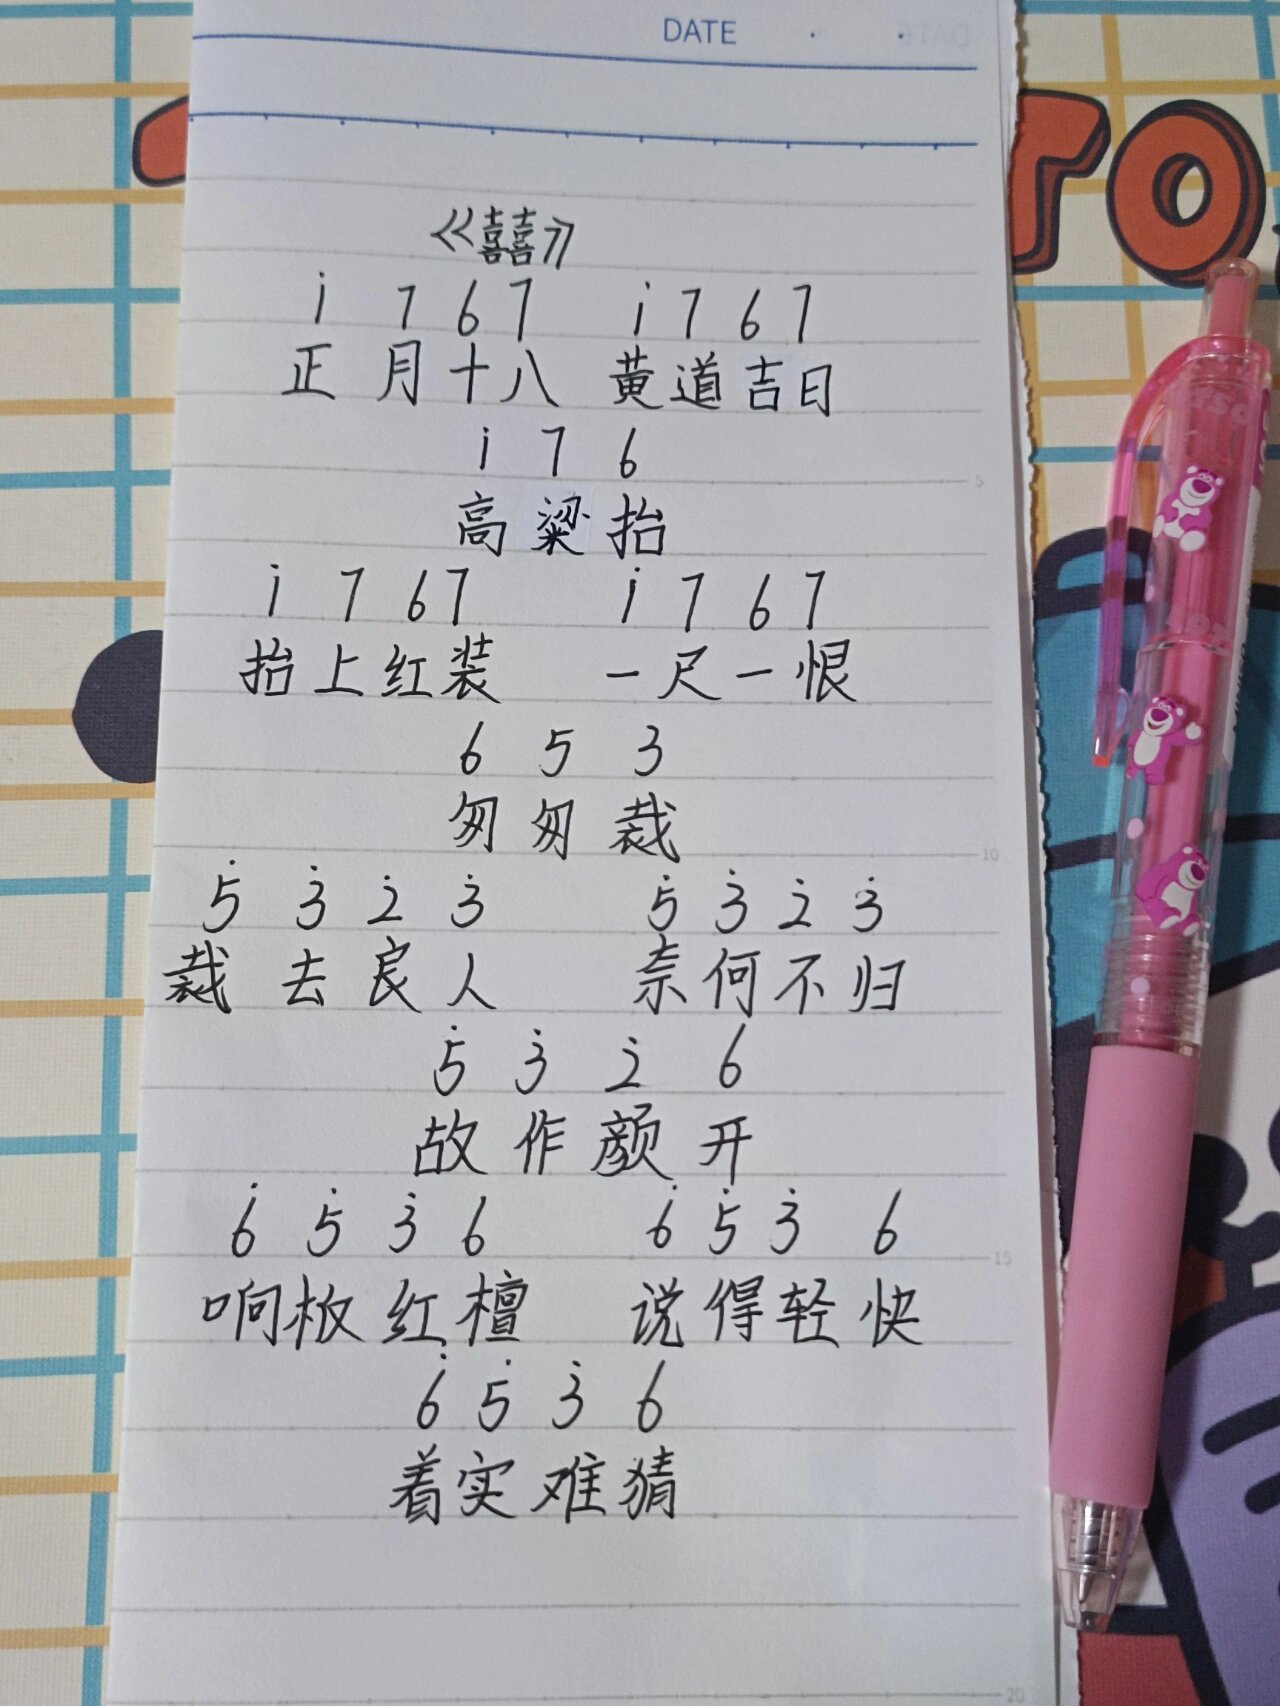 DATE
《囍》
i 7 6 7 i 7 6 7
正月十八 黄道吉日
i 7 6
高粱抬
i 7 6 7 i 7 6 7
抬上红装 一尺一恨
6 5 3
匆匆裁
5̇ 3̇ 2̇ 3̇ 5̇ 3̇ 2̇ 3̇
裁去良人 奈何不归
5̇ 3̇ 2̇ 6
故作颜开
6̇ 5̇ 3̇ 6 6̇ 5̇ 3̇ 6
响板红檀 说得轻快
6̇ 5̇ 3̇ 6
着实难猜
5
10
15
20
TO